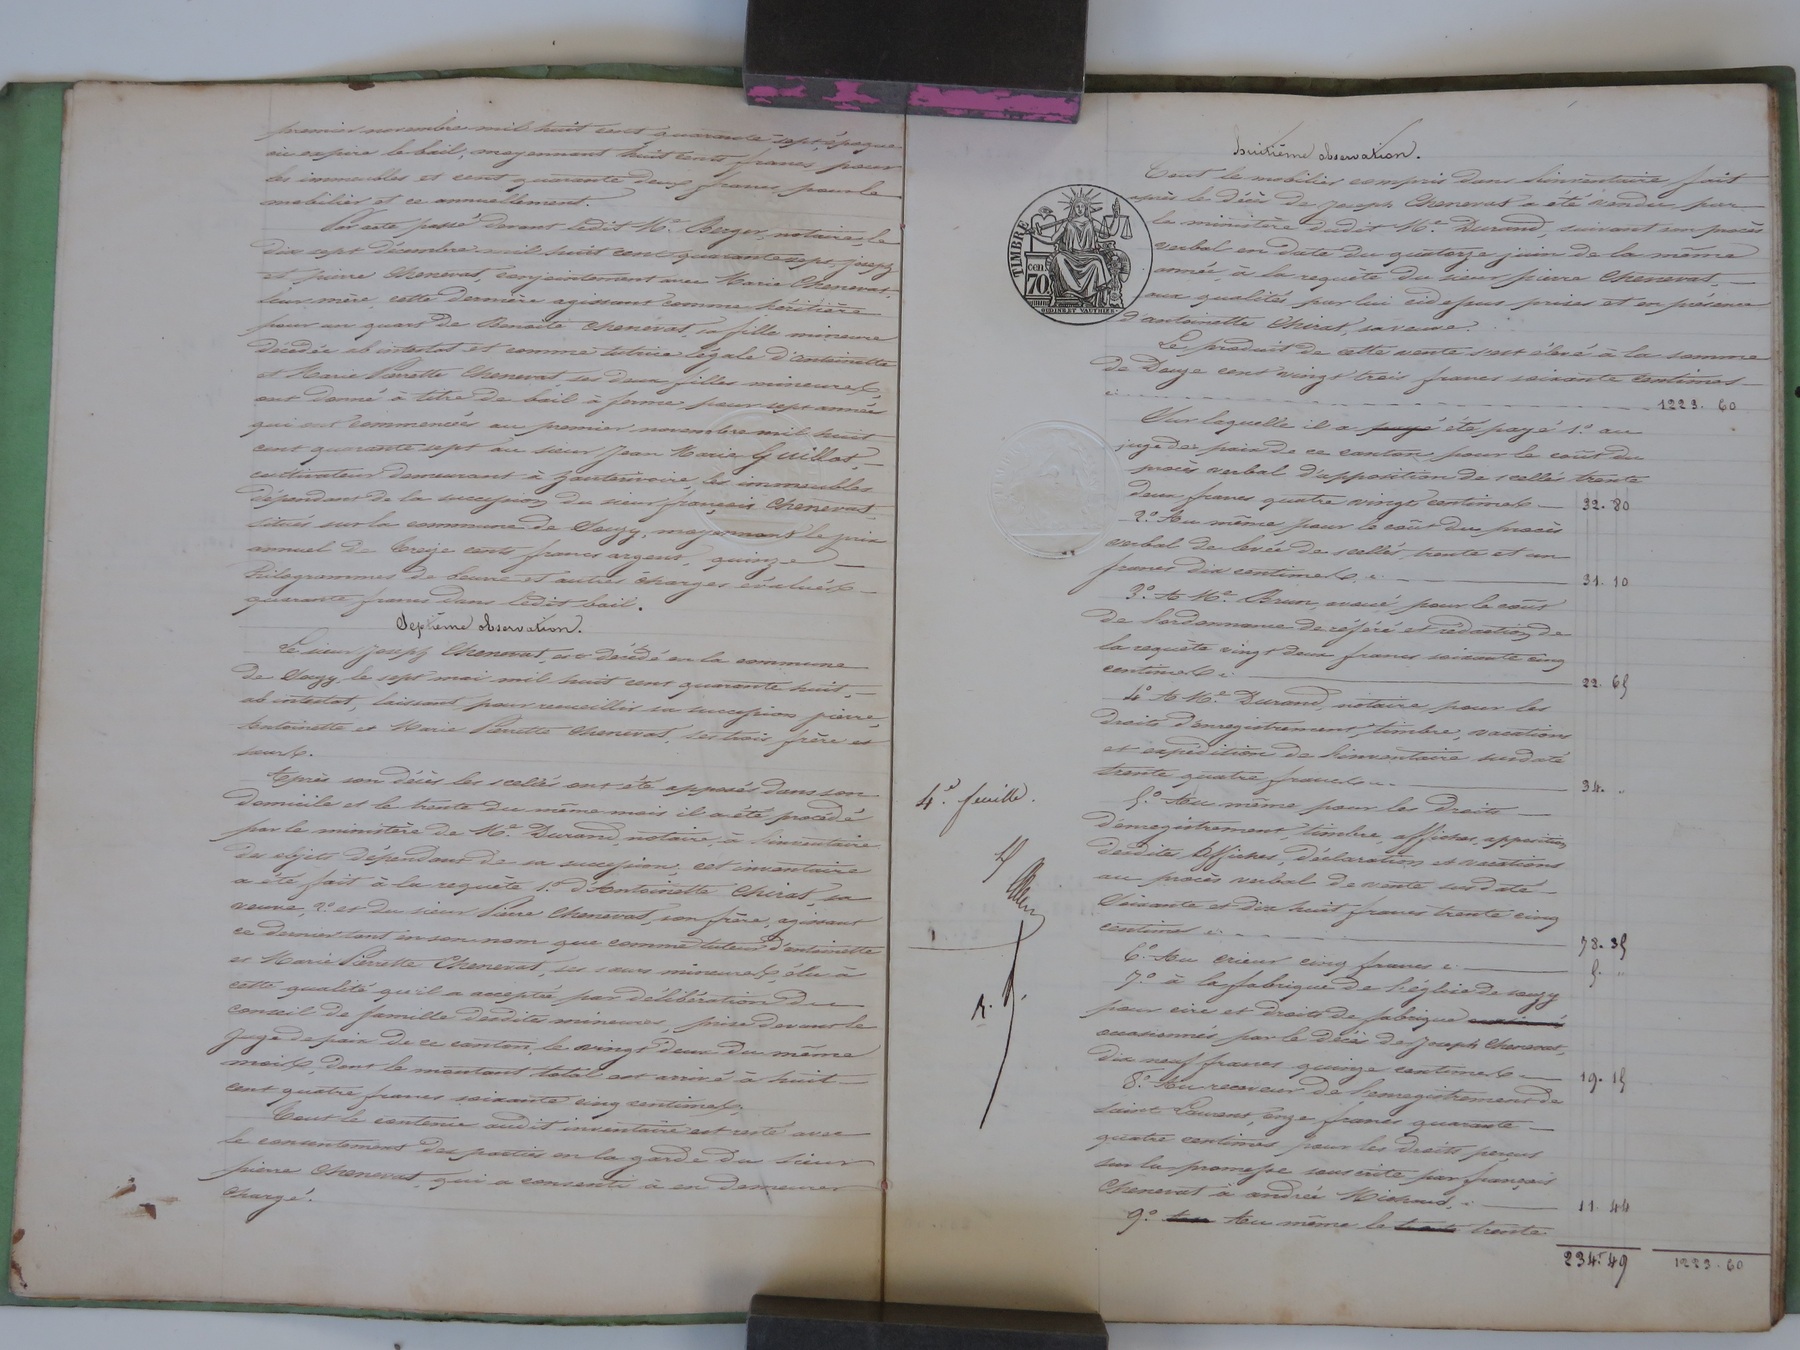 premier novembre mil huit cent quarante sept, époque
où expire le bail, moyennant huit cents francs, pour
les immeubles et cent quarante deux francs, pour le
mobilier et ce annuellement.
Par acte passé devant ledit Me. Berger, notaire, le
dix sept décembre mil huit cent quarante sept, joseph
et pierre Chenevat, conjointement avec Marie Chenevat,
leur mère, cette dernière agissant comme héritière
pour un quart de Benoite Chenevat, sa fille mineure
décédée ab intestat et comme tutrice légale d'antoinette
et Marie Perrette Chenevat ses deux filles mineures,
ont donné à titre de bail à ferme pour sept années
qui ont commencées au premier novembre mil huit
cent quarante sept au sieur Jean Marie Guillot,
cultivateur demeurant à fauterivoire, les immeubles
dépendant de la succession du sieur françois Chenevat
situés sur la commune de Souzy, moyennant le prix
annuel de treize cents francs argent, quinze
kilogrammes de beurre et autres charges évalués
quarante francs dans ledit bail.
Septième observation.
Le sieur Joseph Chenevat, est décédé en la commune
de Souzy, le sept mai mil huit cent quarante huit,
ab intestat, laissant pour recueillir sa succession pierre,
Antoinette et Marie Perrette Chenevat, ses trois frère et
sœurs.
Après son décès les scellés ont été apposés dans son
domicile et le trente du même mois il a été procédé
par le ministère de Me. Durand, notaire, à l'inventaire
des objets dépendant de sa succession, cet inventaire
a été fait à la requête 1.º d'Antoinette Chirat, sa
veuve, 2.º et du sieur Pierre Chenevat, son frère, agissant
ce dernier tant en son nom que comme tuteur d'antoinette
et Marie Perrette Chenevat, ses sœurs mineures, élu à
cette qualité qu'il a acceptée par délibération du
conseil de famille desdites mineures, prise devant le
Juge de paix de ce canton, le vingt deux du même
mois, dont le montant total est arrivé à huit
cent quatre francs soixante cinq centimes.
Tout le contenu audit inventaire est resté avec
le consentement des parties en la garde du sieur
pierre Chenevat, qui a consenti à en demeurer
chargé.
4.e feuille.
huitième observation.
TIMBRE
cen.
70
Tout le mobilier compris dans l'inventaire fait
après le décès de Joseph Chenevat a été vendu par
le ministère dudit Me. Durand, suivant son procès
verbal en date du quatorze juin de la même
année, à la requête du sieur pierre Chenevat,
aux qualités par lui cidessus prises et en présence
d'antoinette Chirat, sa veuve.
Le produit de cette vente s'est élevé à la somme
de Douze cent vingt trois francs soixante centimes
ci 1223. 60
Sur laquelle il a payé été payé 1.º au
juge de paix de ce canton pour le coût du
procès verbal d'apposition de scellés trente
deux francs quatre vingt centimes 32. 80
2.º Au même pour le coût du procès
verbal de levée de scellés, trente et un
francs dix centimes ci 31. 10
3.º A Me. Brun, avoué pour le coût
de l'ordonnance de référé et rédaction de
la requête vingt deux francs soixante cinq
centimes ci 22. 65
4.º A Me. Durand notaire, pour les
droits d'enregistrement, timbre, vacations
et expédition de l'inventaire susdaté
trente quatre francs ci 34. "
5.º Au même pour les Droits
d'enregistrement timbre, affiches, apposition
desdites Affiches, déclaration et vacations
au procès verbal de vente susdaté
Soixante et dix huit francs trente cinq
centimes ci 78. 35
6.º Au crieur cinq francs ci 5. "
7.º à la fabrique de l'église de souzy
pour cire et droits de fabrique
occasionnés par le décès de Joseph Chenevat,
dix neuf francs quinze centimes 19. 15
8.º Au receveur de l'enregistrement de
saint Laurent, onze francs quarante
quatre centimes pour les droits perçus
sur la promesse souscrite par françois
Chenevat à andrée Michaud, ci 11. 44
9.º Au même le trente
234. 49 1223. 60